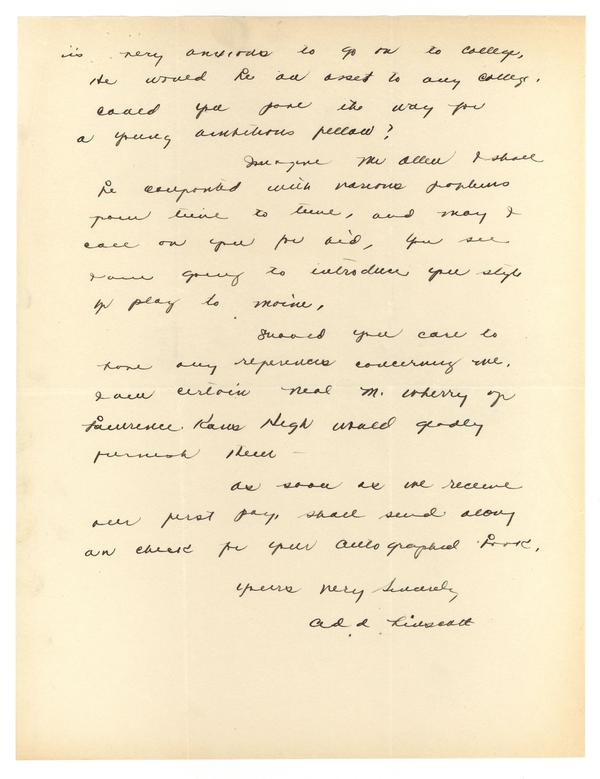 is very anxious to go on to college,
He would be an asset to any college.
Could you pave the way for
a young ambitious fellow?
Imagine Mr Allen I shall
be confronted with various problems
from time to time, and may I
call on you for aid, You see
I am going to introduce your style
of play to Maine,
Should you care to
have any references concerning me,
I am certain Neal M. Wherry of
Lawrence Kans High would gladly
furnish them –
As soon as we receive
our first pay, shall send along
an check for your autographed book.
Yours very Sincerely,
Linscott